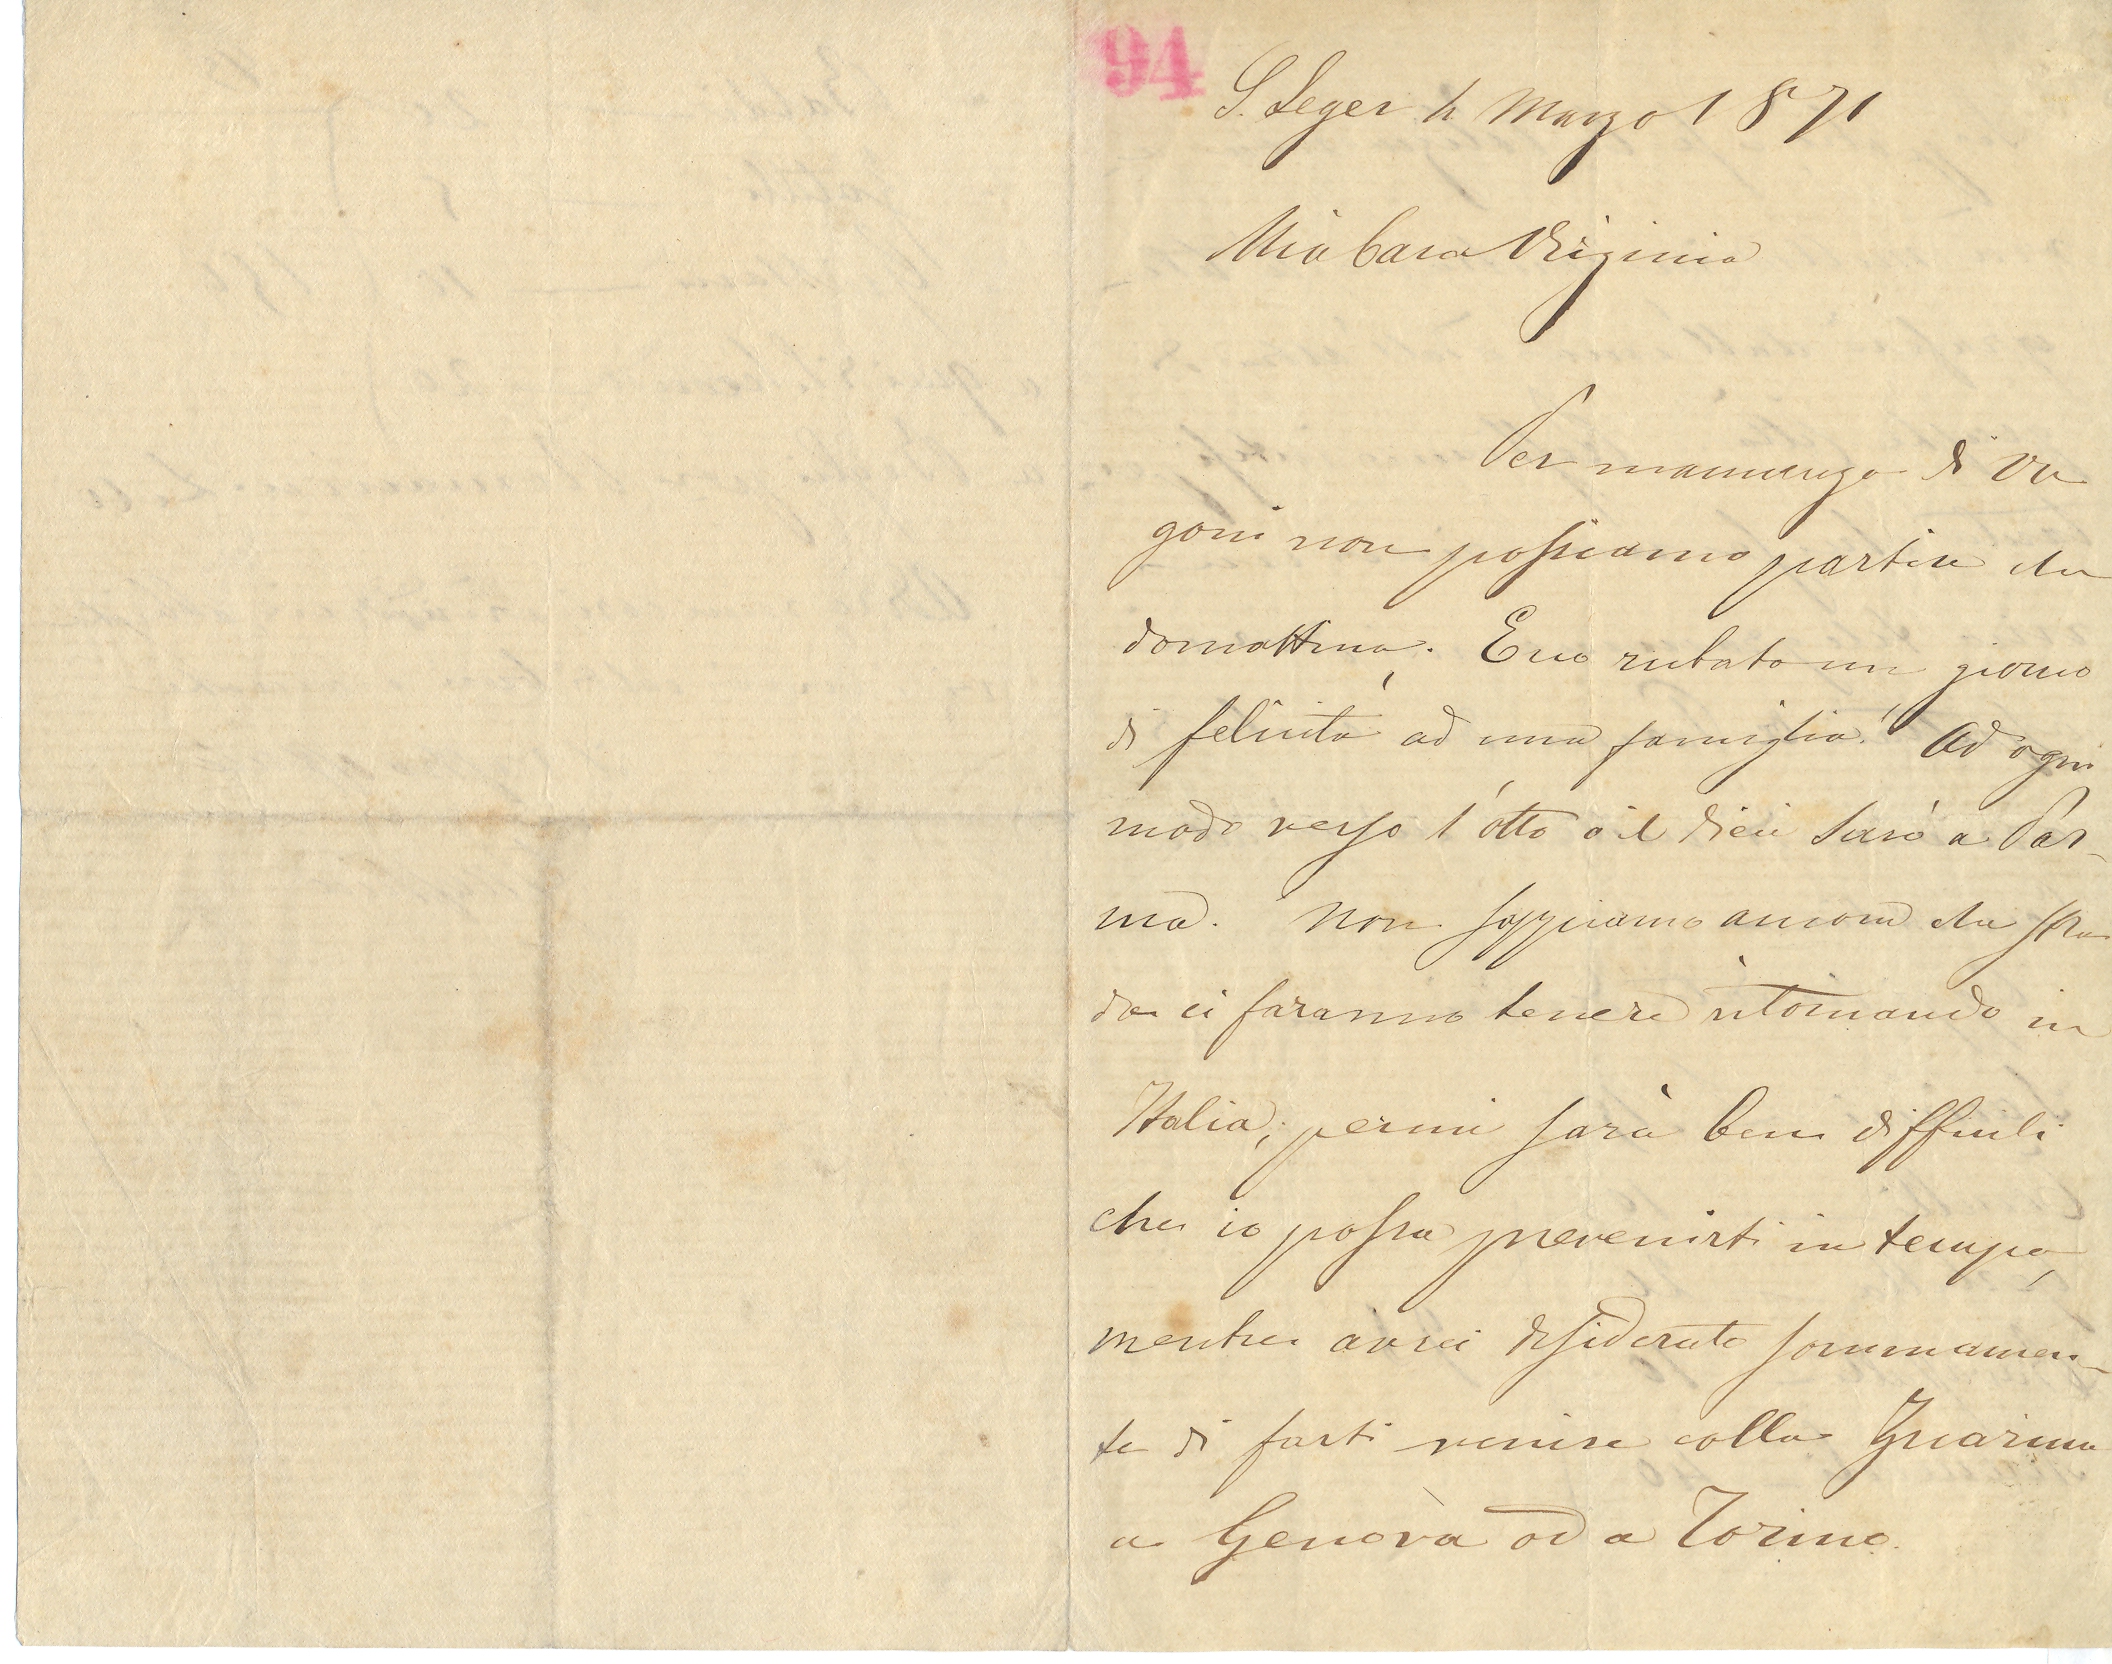 94
S. Leger 4 Marzo 1871
Mia Cara Virginia
Per mancanza di va
goni non possiamo partire che
domattina. È un rubato un giorno
di felicità ad una famiglia! Ad ogni
modo verso l'otto o il dieci sarò a Par-
ma. Non sappiamo ancora che stra
da ci faranno tenere ritornando in
Italia; permi sarà ben difficile
che io possa prevenirti in tempo,
mentre avrei desiderato sommamen-
te di farti venire colla
a Genova od a Torino.